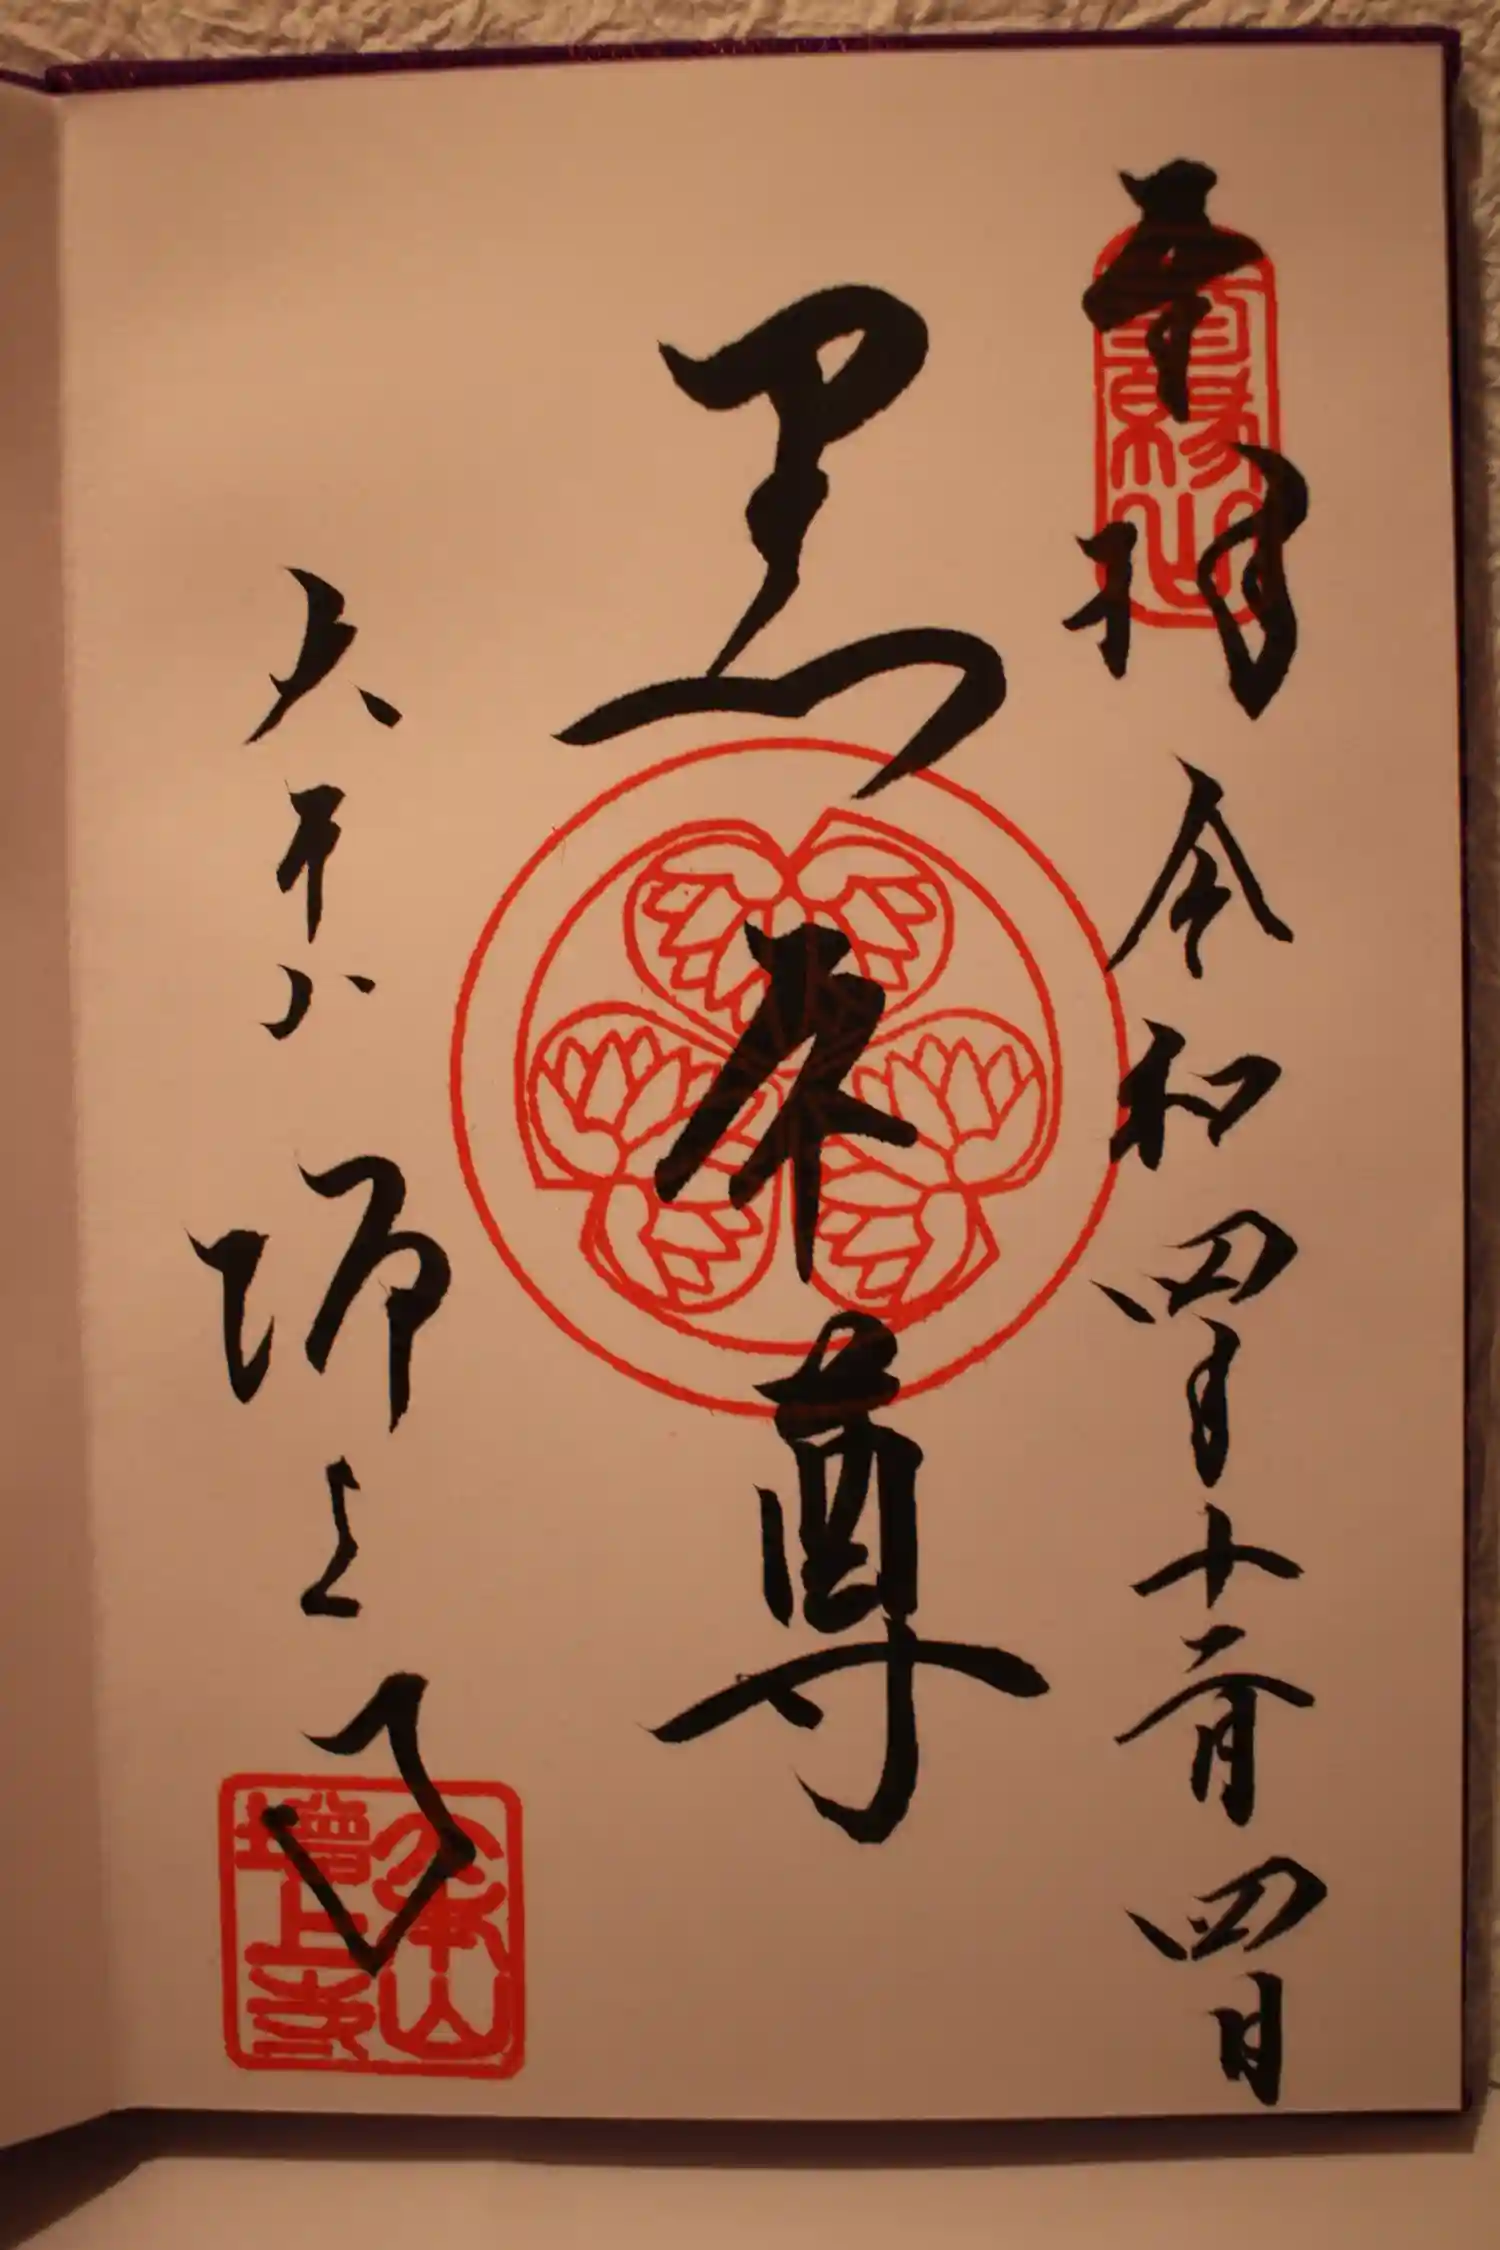 奉拝 令和四年十二月四日
黒本尊
大本山 増上寺
大本山
増上寺